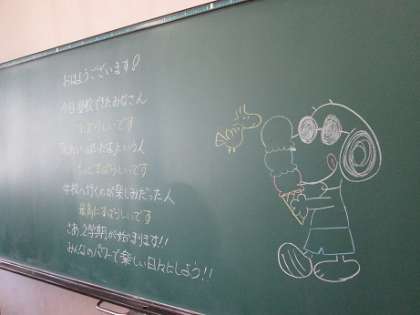 おはようございます!
今日登校できたみなさん
すばらしいです
という人
もっとすばらしいです
学校へ行くのが楽しみだった人
最高にすばらしいです
さあ、2学期が始まります!!
みんなのパワーで楽しい日々にしよう!!